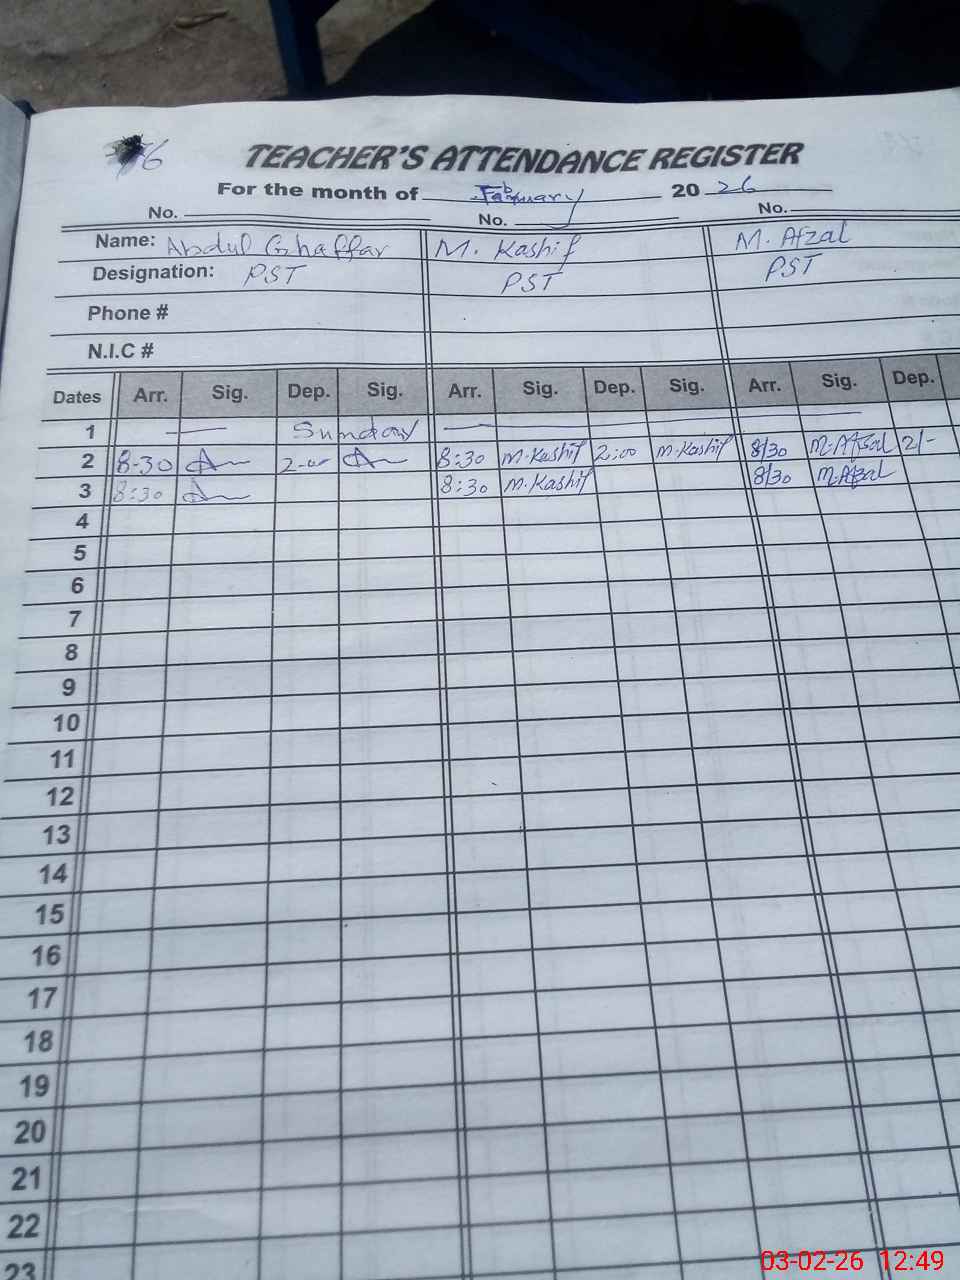 6
TEACHER'S ATTENDANCE REGISTER
For the month of February 20 26
No. No. No.
Name: Abdul Ghaffar M. Kashif M. Afzal
Designation: PST PST PST
Phone #
N.I.C #
Dates Arr. Sig. Dep. Sig. Arr. Sig. Dep. Sig. Arr. Sig. Dep.
1 — Sunday —
2 8-30 2-00 8:30 M.Kashif 2:00 M.Kashif 8/30 M.Afzal 2/-
3 8:30 8:30 M.Kashif 8/30 M.Afzal
4
5
6
7
8
9
10
11
12
13
14
15
16
17
18
19
20
21
22
23
03-02-26 12:49